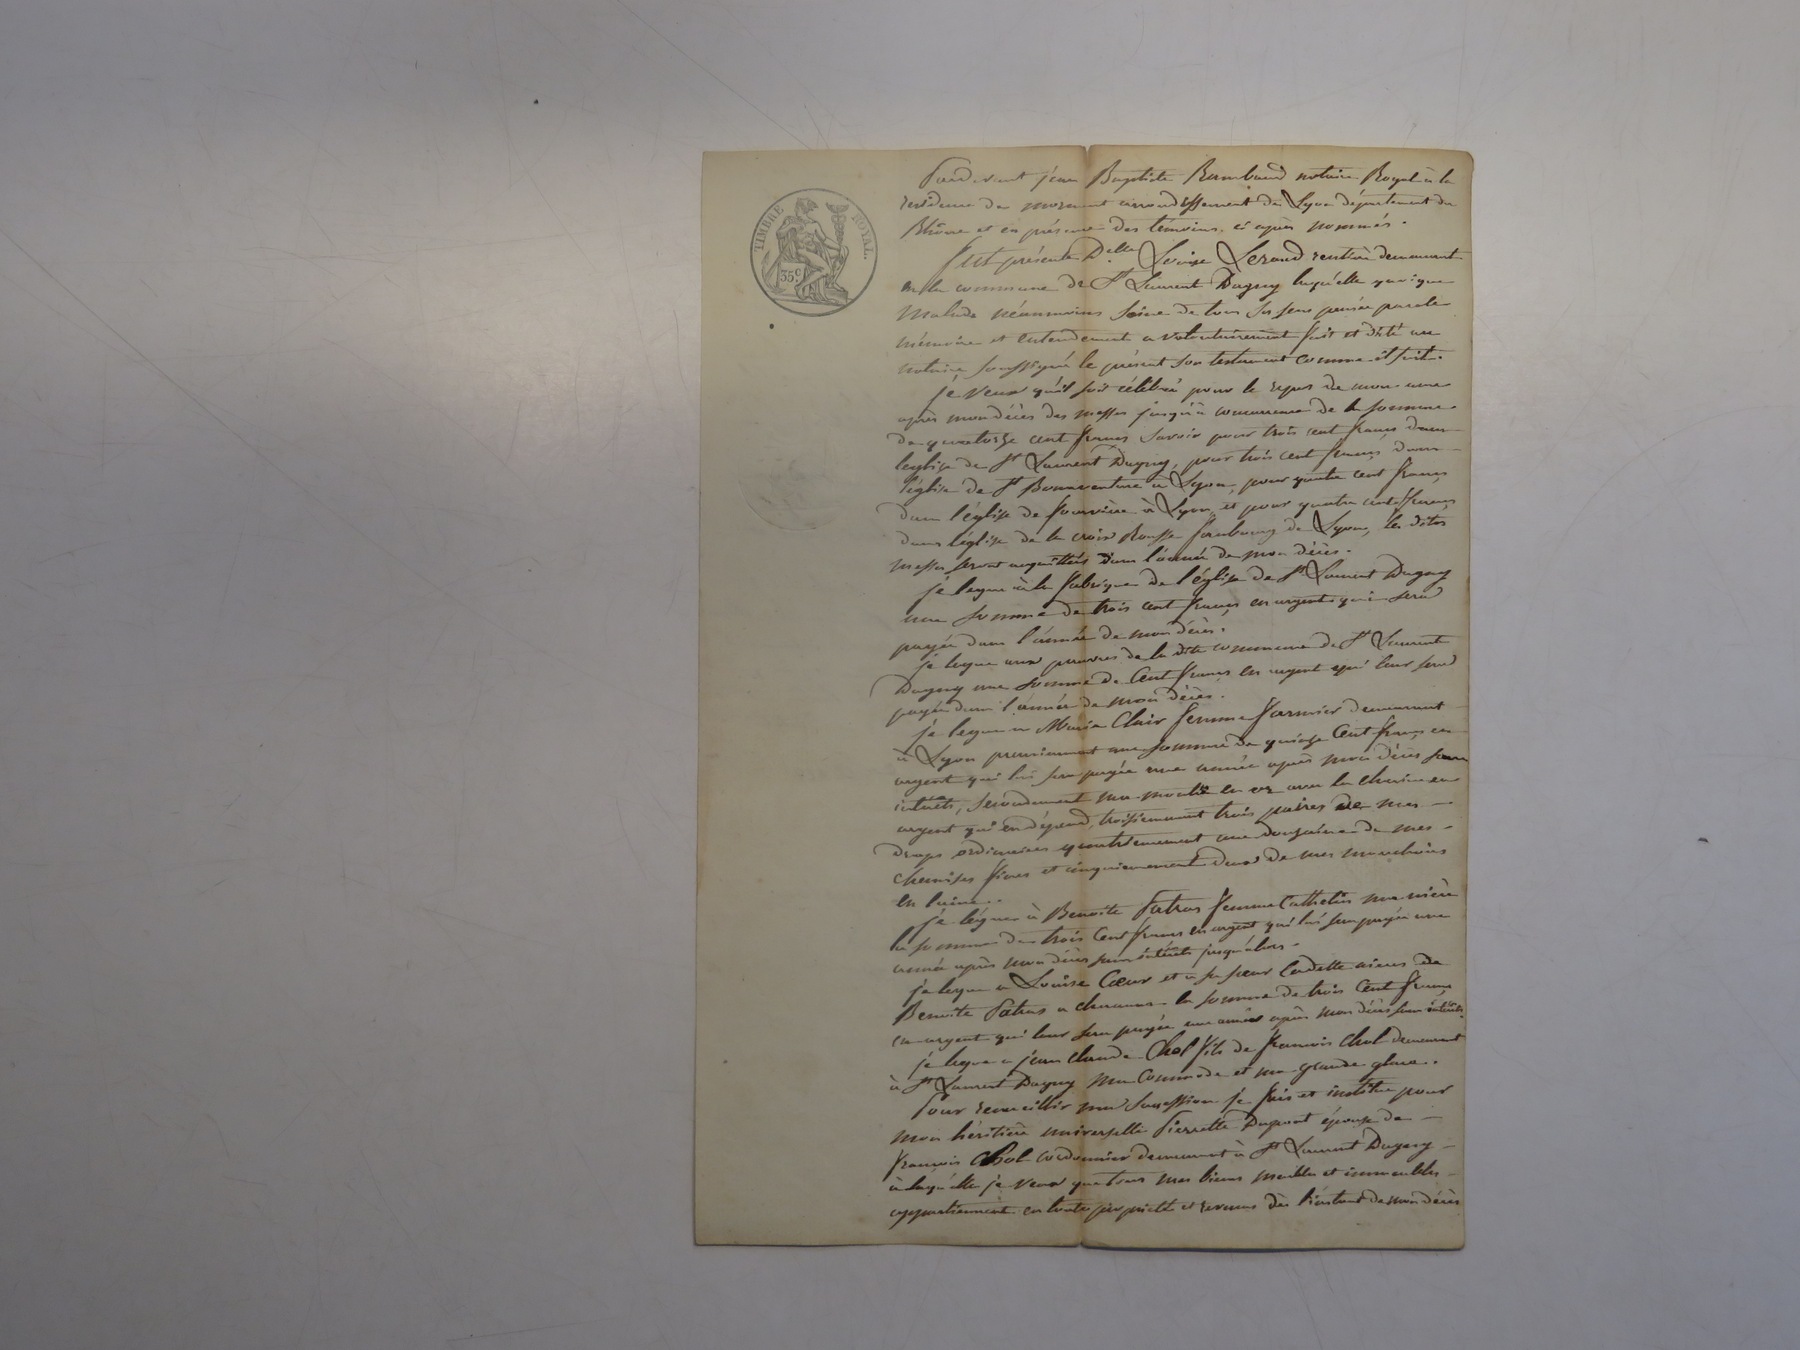 TIMBRE ROYAL.
35c
Pardevant jean Baptiste Rambaud notaire Royal à la
residence de mornant arrondissement de Lyon département du
Rhône et en présence des témoins ci après nommés.
fut présente Delle Louise Lerand rentière demeurant
en la commune de St Laurent Dagny laquelle quoique
malade néanmoins saine de tous ses sens pensée parole
mémoire et entendement a volontairement fait et dicté au
notaire soussigné le présent son testament comme il suit.
je veux qu'il soit célébré pour le repos de mon ame
après mon décès des messes jusqu'à concurrence de la somme
de quatorze cent francs savoir pour trois cent francs dans
léglise de St Laurent Dagny, pour trois cent francs dans
l'église de St Bonaventure à Lyon, pour quatre cent francs
dans l'église de fourvière à Lyon, et pour quatre cent francs
dans léglise de la croix Rousse faubourg de Lyon, les dites
messes seront acquittées dans l'année de mon décès.
je legue à la fabrique de l'église de St Laurent Dagny
une somme de trois cent francs en argent qui sera
payée dans l'année de mon décès.
je legue aux pauvres de la dite commune de St Laurent
Dagny une somme de cent francs en argent qui leur sera
payée dans l'année de mon décès.
je legue a Marie Clair femme farnier demeurant
à Lyon premierement une somme de quinze cent francs en
argent qui lui sera payée une année après mon décès sans
intérêts, secondement ma montre en or avec la chaine en
argent qui en dépend, troisiemement trois paires de mes
draps ordinaires quatriemement une douzaine de mes
chemises fines et cinquiemement deux de mes mouchoirs
en laine..
je légue à Benoite Patras femme Cathelin ma nièce
la somme de trois cent francs en argent qui lui sera payée une
année après mon décès sans intérêts jusqu'alors.
je legue a Louise Cœur et a sa sœur Cadette nieces de
Benoite Patras a chacune la somme de trois cent francs
en argent qui leur sera payée une année après mon décès sans intérêts.
je legue a jean claude Chol fils de francois Chol demeurant
à St Laurent Dagny ma commode et ma grande glace.
Pour recueillir ma succession je fais et institue pour
mon héritière universelle Pierrette Dupont épouse de
francois Chol cordonnier demeurant à St Laurent Dagny
à laquelle je veux que tous mes biens meubles et immeubles
appartiennent en toute propriété et revenus dès l'instant de mon décès